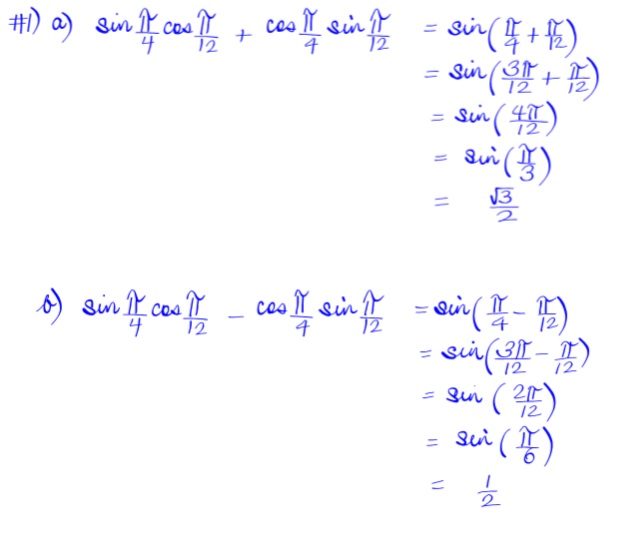 #1) a) sin π/4 cos π/12 + cos π/4 sin π/12 = sin(π/4 + π/12)
= sin(3π/12 + π/12)
= sin(4π/12)
= sin(π/3)
= √3/2
b) sin π/4 cos π/12 − cos π/4 sin π/12 = sin(π/4 − π/12)
= sin(3π/12 − π/12)
= sin(2π/12)
= sin(π/6)
= 1/2